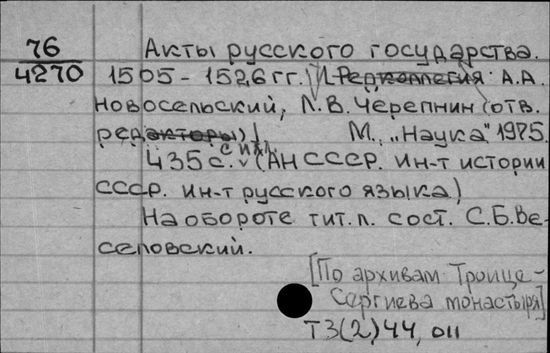 76
4270
Акты русского государства.
1505-1526 гг. Редколлегия: А.А.
Новосельский, Л.В. Черепнин (отв.
редакторы) М., "Наука" 1975.
435 с. с илл. (АН СССР. Ин-т истории
СССР. Ин-т русского языка)
На обороте тит. л. сост. С.Б. Ве-
селовский.
[По архивам Троице-
Сергиева монастыря]
Т3(2)44,011